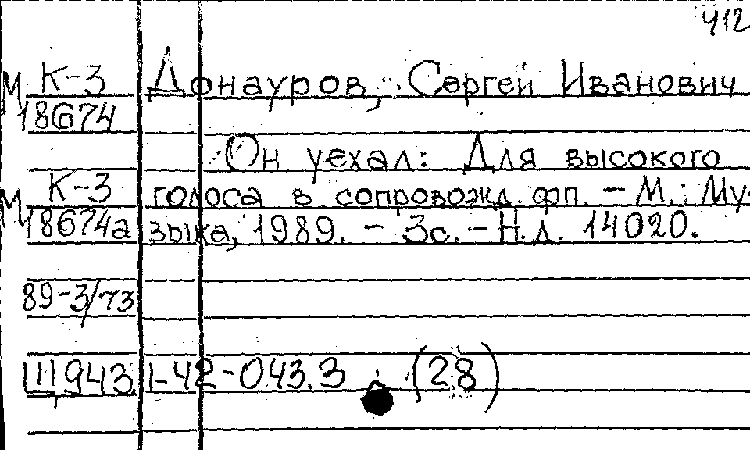 412
М К-3 Донауров, Сергей Иванович
18674
Он уехал: Для высокого
М К-3 голоса в сопровожд. фп. – М.: Му-
18674а зыка, 1989. – 3с. – Н.д. 14020.
89-3/73
Щ943 1-42-043.3 (28)